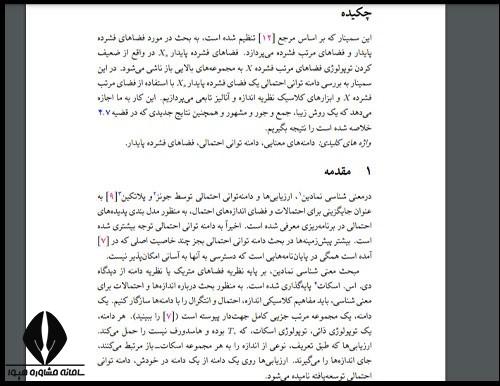 چکیده
این سمینار که بر اساس مرجع [۱۲] تنظیم شده است، به بحث در مورد فضاهای فشرده
پایدار و فضاهای مرتب فشرده می‌پردازد. فضاهای فشرده پایدار X، در واقع از ضعیف
کردن توپولوژی فضاهای مرتب فشرده X به مجموعه‌های بالایی باز ناشی می‌شود. در این
سمینار به بررسی دامنه توانی احتمالی یک فضای فشرده پایدار X، با استفاده از فضای مرتب
فشرده X و ابزارهای کلاسیک نظریه اندازه و آنالیز تابعی می‌پردازیم. این کار به ما اجازه
می‌دهد که یک روش زیبا، جمع و جور و مشهور و همچنین نتایج جدیدی که در قضیه ۴.۷
خلاصه شده است را نتیجه بگیریم.
واژه های کلیدی: دامنه‌های معنایی، دامنه توانی احتمالی، فضاهای فشرده پایدار.
۱ مقدمه
درمعنی شناسی نمادین۱، ارزیابی‌ها و دامنه‌توانی احتمالی توسط جونز۲و پلاتکین۳[۹] به
عنوان جایگزینی برای احتمالات و فضای اندازه‌های احتمال، به منظور مدل بندی پدیده‌های
احتمالی در برنامه‌ریزی معرفی شده است. اخیراً به دامنه توانی احتمالی توجه بیشتری شده
است. بیشتر پیش‌زمینه‌ها در بحث دامنه توانی احتمالی بجز چند خاصیت اصلی که در [۷]
آمده است همگی در پایان‌نامه‌هایی است که دسترسی به آنها به آسانی امکان‌پذیر نیست.
مبحث معنی شناسی نمادین، بر پایه نظریه فضاهای متریک یا نظریه دامنه از دیدگاه
دی. اس. اسکات۴ پایه‌گذاری شده است. به منظور بحث درباره اندازه‌ها و احتمالات برای
معنی شناسی، باید مفاهیم کلاسیکی اندازه، احتمال و انتگرال را با دامنه‌ها سازگار کنیم. یک
دامنه، یک مجموعه مرتب جزیی کامل جهت‌دار پیوسته است ([۷] را ببینید). هر دامنه،
یک توپولوژی ذاتی، توپولوژی اسکات، که T. بوده و هاسدورف نیست را حمل می‌کند.
ارزیابی‌ها که طبق تعریف، نوعی از اندازه را به هر مجموعه اسکات-باز مرتبط می‌کنند،
جای اندازه‌ها را می‌گیرند. ارزیابی‌ها روی یک دامنه از یک دامنه در خودش، دامنه توانی
احتمالی توسعه‌یافته نامیده می‌شود.
سامانه مشاوره هیوا